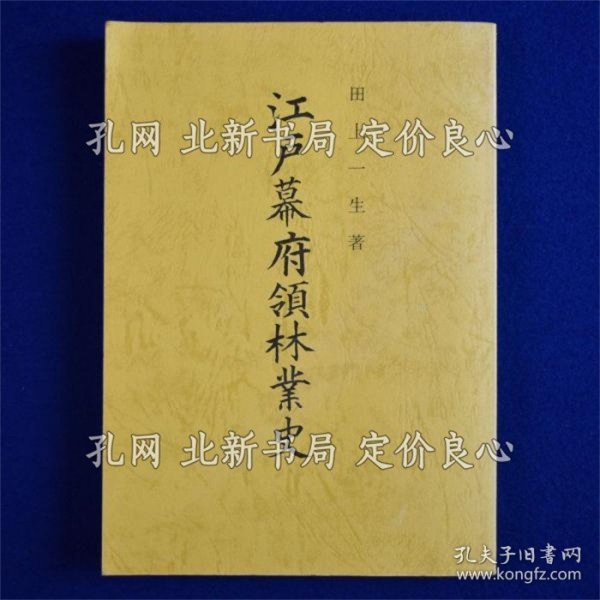 田上一生著
江戸幕府領林業史
孔网 北新书局 定价良心
孔网 北新书局 定价良心
孔夫子旧书网
www.kongfz.com